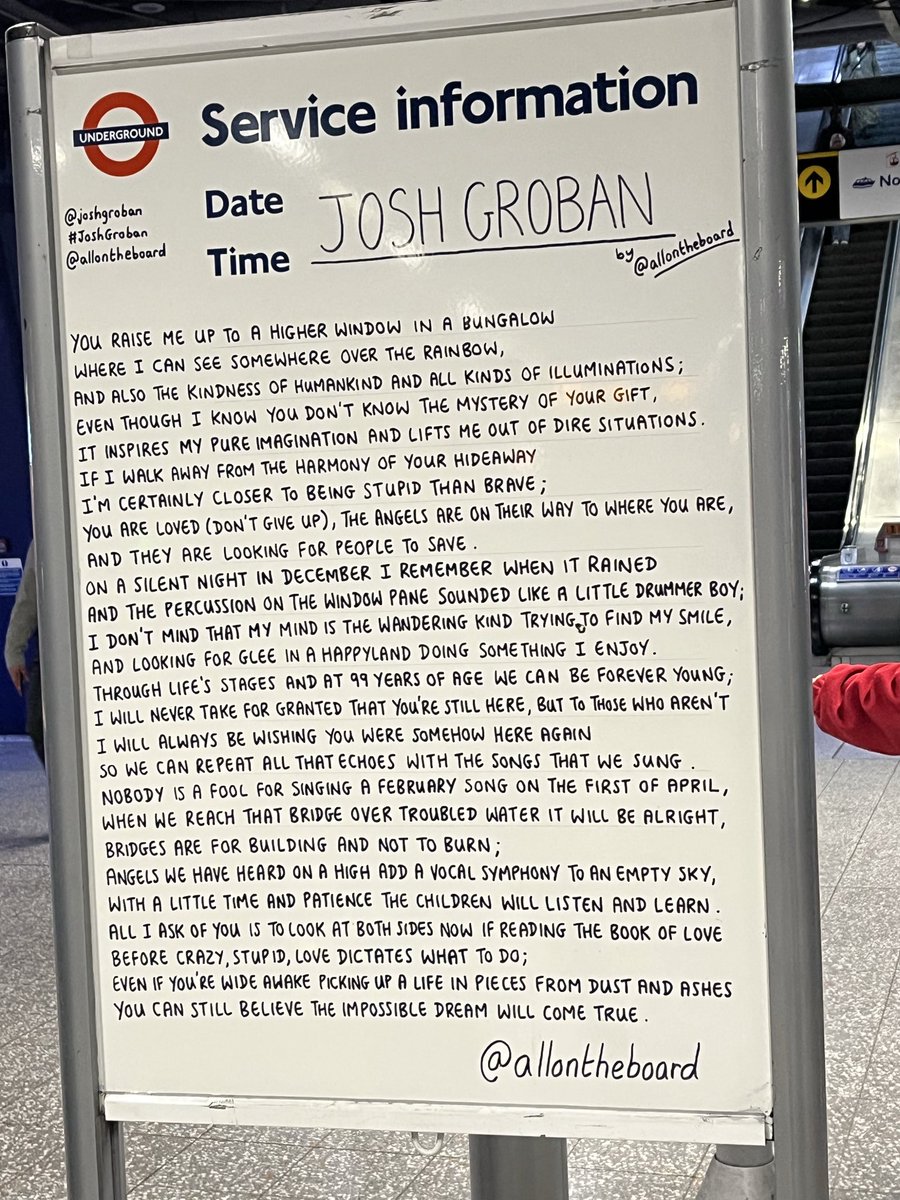 UNDERGROUND
Service information
Date
Time
JOSH GROBAN
by @allontheboard
@joshgroban
#JoshGroban
@allontheboard
YOU RAISE ME UP TO A HIGHER WINDOW IN A BUNGALOW
WHERE I CAN SEE SOMEWHERE OVER THE RAINBOW,
AND ALSO THE KINDNESS OF HUMANKIND AND ALL KINDS OF ILLUMINATIONS;
EVEN THOUGH I KNOW YOU DON'T KNOW THE MYSTERY OF YOUR GIFT,
IT INSPIRES MY PURE IMAGINATION AND LIFTS ME OUT OF DIRE SITUATIONS.
IF I WALK AWAY FROM THE HARMONY OF YOUR HIDEAWAY
I'M CERTAINLY CLOSER TO BEING STUPID THAN BRAVE;
YOU ARE LOVED (DON'T GIVE UP), THE ANGELS ARE ON THEIR WAY TO WHERE YOU ARE,
AND THEY ARE LOOKING FOR PEOPLE TO SAVE.
ON A SILENT NIGHT IN DECEMBER I REMEMBER WHEN IT RAINED
AND THE PERCUSSION ON THE WINDOW PANE SOUNDED LIKE A LITTLE DRUMMER BOY;
I DON'T MIND THAT MY MIND IS THE WANDERING KIND TRYING TO FIND MY SMILE,
AND LOOKING FOR GLEE IN A HAPPYLAND DOING SOMETHING I ENJOY.
THROUGH LIFE'S STAGES AND AT 99 YEARS OF AGE WE CAN BE FOREVER YOUNG;
I WILL NEVER TAKE FOR GRANTED THAT YOU'RE STILL HERE, BUT TO THOSE WHO AREN'T
I WILL ALWAYS BE WISHING YOU WERE SOMEHOW HERE AGAIN
SO WE CAN REPEAT ALL THAT ECHOES WITH THE SONGS THAT WE SUNG.
NOBODY IS A FOOL FOR SINGING A FEBRUARY SONG ON THE FIRST OF APRIL,
WHEN WE REACH THAT BRIDGE OVER TROUBLED WATER IT WILL BE ALRIGHT,
BRIDGES ARE FOR BUILDING AND NOT TO BURN;
ANGELS WE HAVE HEARD ON A HIGH ADD A VOCAL SYMPHONY TO AN EMPTY SKY,
WITH A LITTLE TIME AND PATIENCE THE CHILDREN WILL LISTEN AND LEARN.
ALL I ASK OF YOU IS TO LOOK AT BOTH SIDES NOW IF READING THE BOOK OF LOVE
BEFORE CRAZY, STUPID, LOVE DICTATES WHAT TO DO;
EVEN IF YOU'RE WIDE AWAKE PICKING UP A LIFE IN PIECES FROM DUST AND ASHES
YOU CAN STILL BELIEVE THE IMPOSSIBLE DREAM WILL COME TRUE.
@allontheboard
No